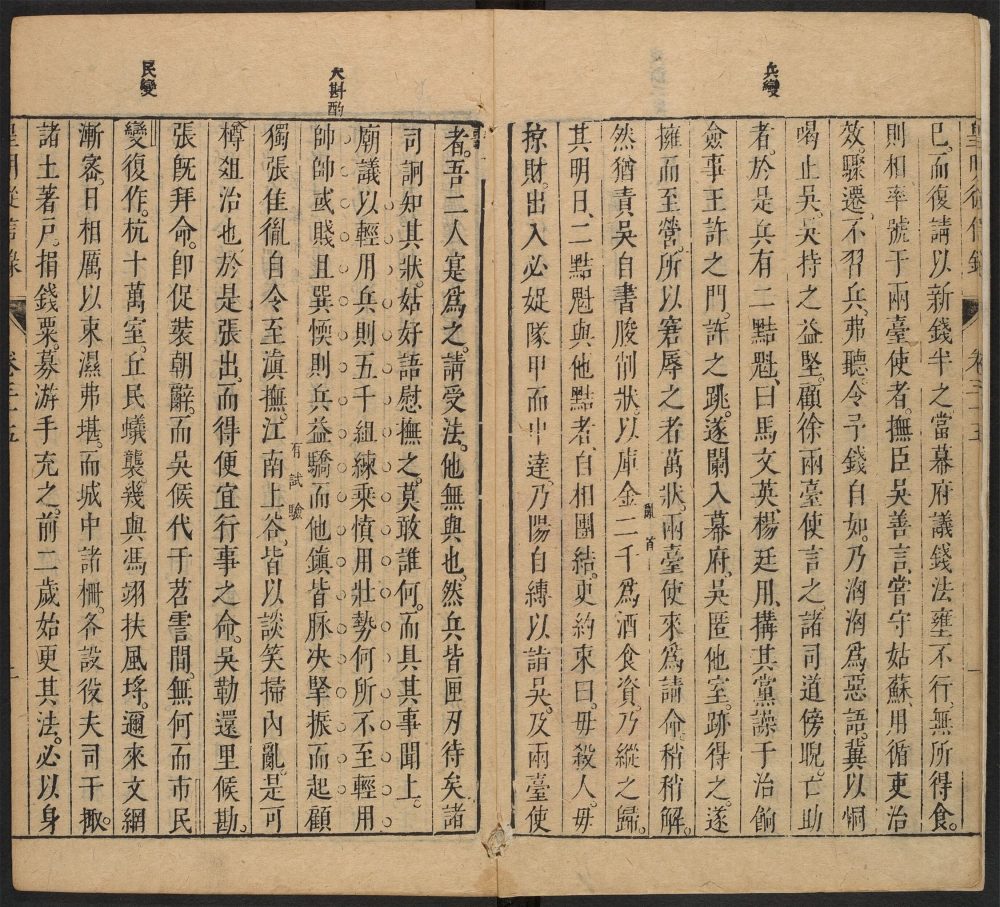 兵變
皇明從信錄 卷三十五
巳。而復請以新錢半之當幕府議錢法壅不行。無所得食。
則相率號于兩臺使者。撫臣吳善言。嘗守姑蘇。用循吏治
效。驟遷。不習兵。弗聽。令予錢自如。乃洶洶爲惡語。冀以恫
喝止吳。吳持之益堅。顧徐兩臺使言之。諸司道傍睨。亡助
者。於是兵有二黠魁。曰馬文英楊廷用。搆其黨譟于治餉
僉事王許之門。許之跳。遂闌入幕府。吳匿他室。跡得之。遂
擁而至營。所以窘辱之者萬狀。兩臺使來爲請命。稍稍解。
然猶責吳自書朘削狀。以庫金二千爲酒食資。乃縱之歸。
其明日。二點魁與他點者。自相團結。更約束曰。毋殺人。毋
掠財。出入必娖隊甲而中逵。乃陽自縛以詣吳。及兩臺使
大斟酌
民變
者。吾二人寔爲之。請受法。他無與也。然兵皆匣刃待矣。諸
司詗知其狀。姑好語慰撫之。莫敢誰何。而具其事聞上。
廟議以輕用兵則五千組練乘憤用壯勢何所不至輕用
帥帥或賤且巽愞則兵益驕而他鎮皆脉决堅振而起顧
獨張佳胤自令至滇撫。江南上谷。皆以談笑掃內亂。是可
有試驗
樽俎治也於是張出。而得便宜行事之命。吳勒還里候勘。
張旣拜命。卽促裝朝辭。而吳候代于苕霅間。無何而市民
變復作。杭十萬室。丘民蟻襲。幾與馮翊扶風埒。邇來文網
漸審。日相厲以束濕弗堪。而城中諸柵。各設役夫司干掫。
諸土著戶。捐錢粟。募游手充之。前二歲始更其法。必以身
皇明從信錄 卷三十五